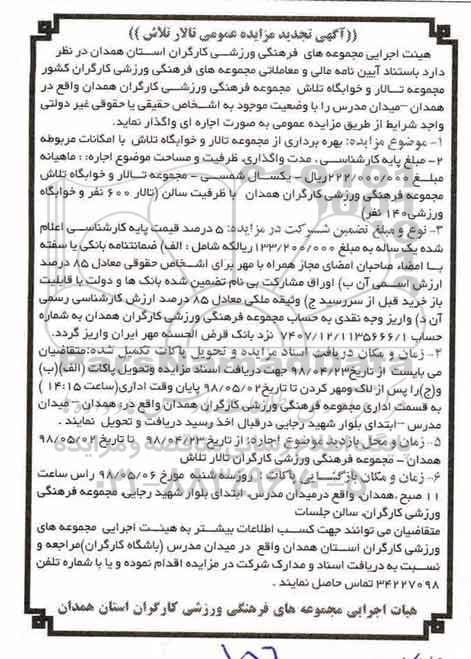 ((آگهی تجدید مزایده عمومی تالار تلاش))
هیئت اجرایی مجموعه های فرهنگی ورزشی کارگران استان همدان در نظر
دارد باستناد آیین نامه مالی و معاملاتی مجموعه های فرهنگی ورزشی کارگران کشور
مجموعه تالار و خوابگاه تلاش مجموعه فرهنگی ورزشی کارگران همدان واقع در
همدان –میدان مدرس را با وضعیت موجود به اشخاص حقیقی یا حقوقی غیر دولتی
واجد شرایط از طریق مزایده عمومی به صورت اجاره ای واگذار نماید.
۱- موضوع مزایده: بهره برداری از مجموعه تالار و خوابگاه تلاش با امکانات مربوطه
۲- مبلغ پایه کارشناسی ، مدت واگذاری، ظرفیت و مساحت موضوع اجاره: ماهیانه
مبلغ ۲۲۲/۰۰۰/۰۰۰ریال - یکسال شمسی - مجموعه تالار و خوابگاه تلاش
مجموعه فرهنگی ورزشی کارگران همدان با ظرفیت سالن (تالار ۶۰۰ نفر و خوابگاه
ورزشی۱۴۰ نفر)
۳- نوع و مبلغ تضمین شرکت در مزایده: ۵ درصد قیمت پایه کارشناسی اعلام
شده یک ساله به مبلغ ۱۳۳/۲۰۰/۰۰۰ ریالکه شامل : الف) ضمانتنامه بانکی یا سفته
با امضاء صاحبان امضای مجاز همراه با مهر برای اشخاص حقوقی معادل ۸۵ درصد
ارزش اسمی آن ب) اوراق مشارکت بی نام تضمین شده بانک ها و دولت با قابلیت
باز خرید قبل از سررسید ج) وثیقه ملکی معادل ۸۵ درصد ارزش کارشناسی رسمی
آن د) واریز وجه نقدی به حساب مجموعه فرهنگی ورزشی کارگران همدان به شماره
حساب ۷۴۰۷/۱۲/۱۱۳۵۶۶۶/۱ نزد بانک قرض الحسنه مهر ایران واریز گردد.
۴- زمان و مکان دریافت اسناد مزایده و تحویل پاکات تکمیل شده:متقاضیان
می بایست از تاریخ۹۸/۰۴/۲۳ جهت دریافت اسناد مزایده وتحویل پاکات (الف)(ب)
و(ج)را پس از لاک ومهر کردن تا تاریخ۹۸/۰۵/۰۲ پایان وقت اداری(ساعت ۱۴:۱۵ )
به قسمت اداری مجموعه فرهنگی ورزشی کارگران همدان واقع در : همدان – میدان
مدرس –ابتدای بلوار شهید رجایی درقبال اخذ رسید دریافت و تحویل نمایند .
۵- زمان و محل بازدید موضوع اجاره: از تاریخ۹۸/۰۴/۲۳ تا تاریخ ۹۸/۰۵/۰۲
همدان - مجموعه فرهنگی ورزشی کارگران تالار تلاش
۶- زمان و مکان بازگشایی پاکات : روز سه شنبه مورخ ۹۸/۰۵/۰۶ راس ساعت
۱۱ صبح ،همدان، واقع درمیدان مدرس، ابتدای بلوار شهید رجایی، مجموعه فرهنگی
ورزشی کارگران، سالن جلسات
متقاضیان می توانند جهت کسب اطلاعات بیشتر به هیئت اجرایی مجموعه های
ورزشی کارگران استان همدان واقع در میدان مدرس (باشگاه کارگران)مراجعه و
نسبت به دریافت اسناد و مدارک شرکت در مزایده اقدام نموده و یا با شماره تلفن
۳۴۲۲۷۰۹۸ تماس حاصل نمایند .
هیات اجرایی مجموعه های فرهنگی ورزشی کارگران استان همدان